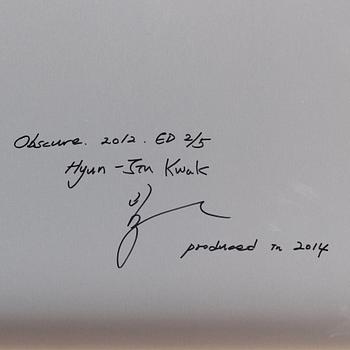 Obscure. 2012. ED 2/5
Hyun-Jin Kwak
produced in 2014